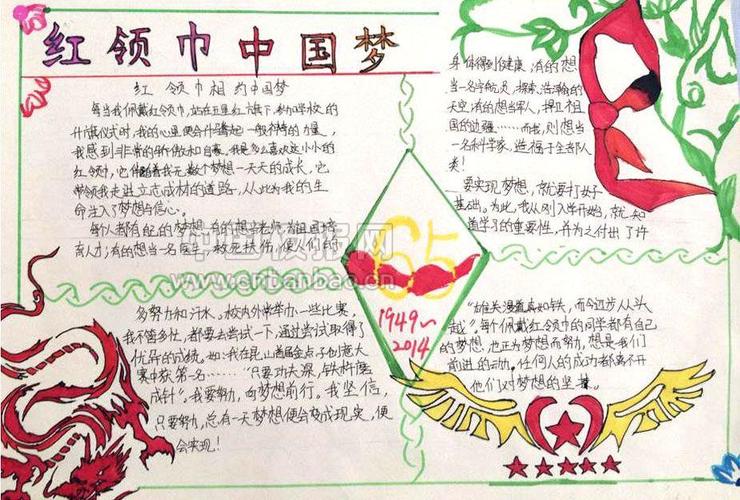 红领巾中国梦
红领巾相约中国梦
每当我佩戴红领巾,站在五星红旗下,参加学校的
升旗仪式时,我的心里便会升腾起一股神奇的力量,
我感到非常的骄傲和自豪。我是多么喜欢这小小的
红领巾,它伴随着我无数个梦想一天天的成长,它
带领我走进立志成材的道路,从此为我的生
命注入了梦想与信心。
每个人都有自己的梦想,有的想当老师,为祖国培
育人才;有的想当一名医生,救死扶伤,使人们的
身体得到健康;有的想
当一名宇航员,探索浩瀚的
天空;有的想当军人,捍卫祖
国的边疆……而我,则想当
一名科学家,造福于全部人
类!
要实现梦想,就要打好
基础。为此,我从刚入学开始,就知
道学习的重要性,并为之付出了许
多努力和汗水。校内外常举办一些比赛,
我不管多忙,都要去尝试一下,通过尝试取得了
优异的成绩。如:我在昆山首届金点子创意大
赛中获第一名……“只要功夫深,铁杵磨
成针”。我要努力,向梦想前行。我坚信,
只要努力,总有一天梦想便会变成现实,便
会实现!
“雄关漫道真如铁,而今迈步从头
越”。每个佩戴红领巾的同学都有自己
的梦想,也正为梦想而努力,想是我们
前进的动力。任何人的成功都离不开
他们对梦想的坚
65
1949~
2014
中国板报网
www.cnbanbao.cn